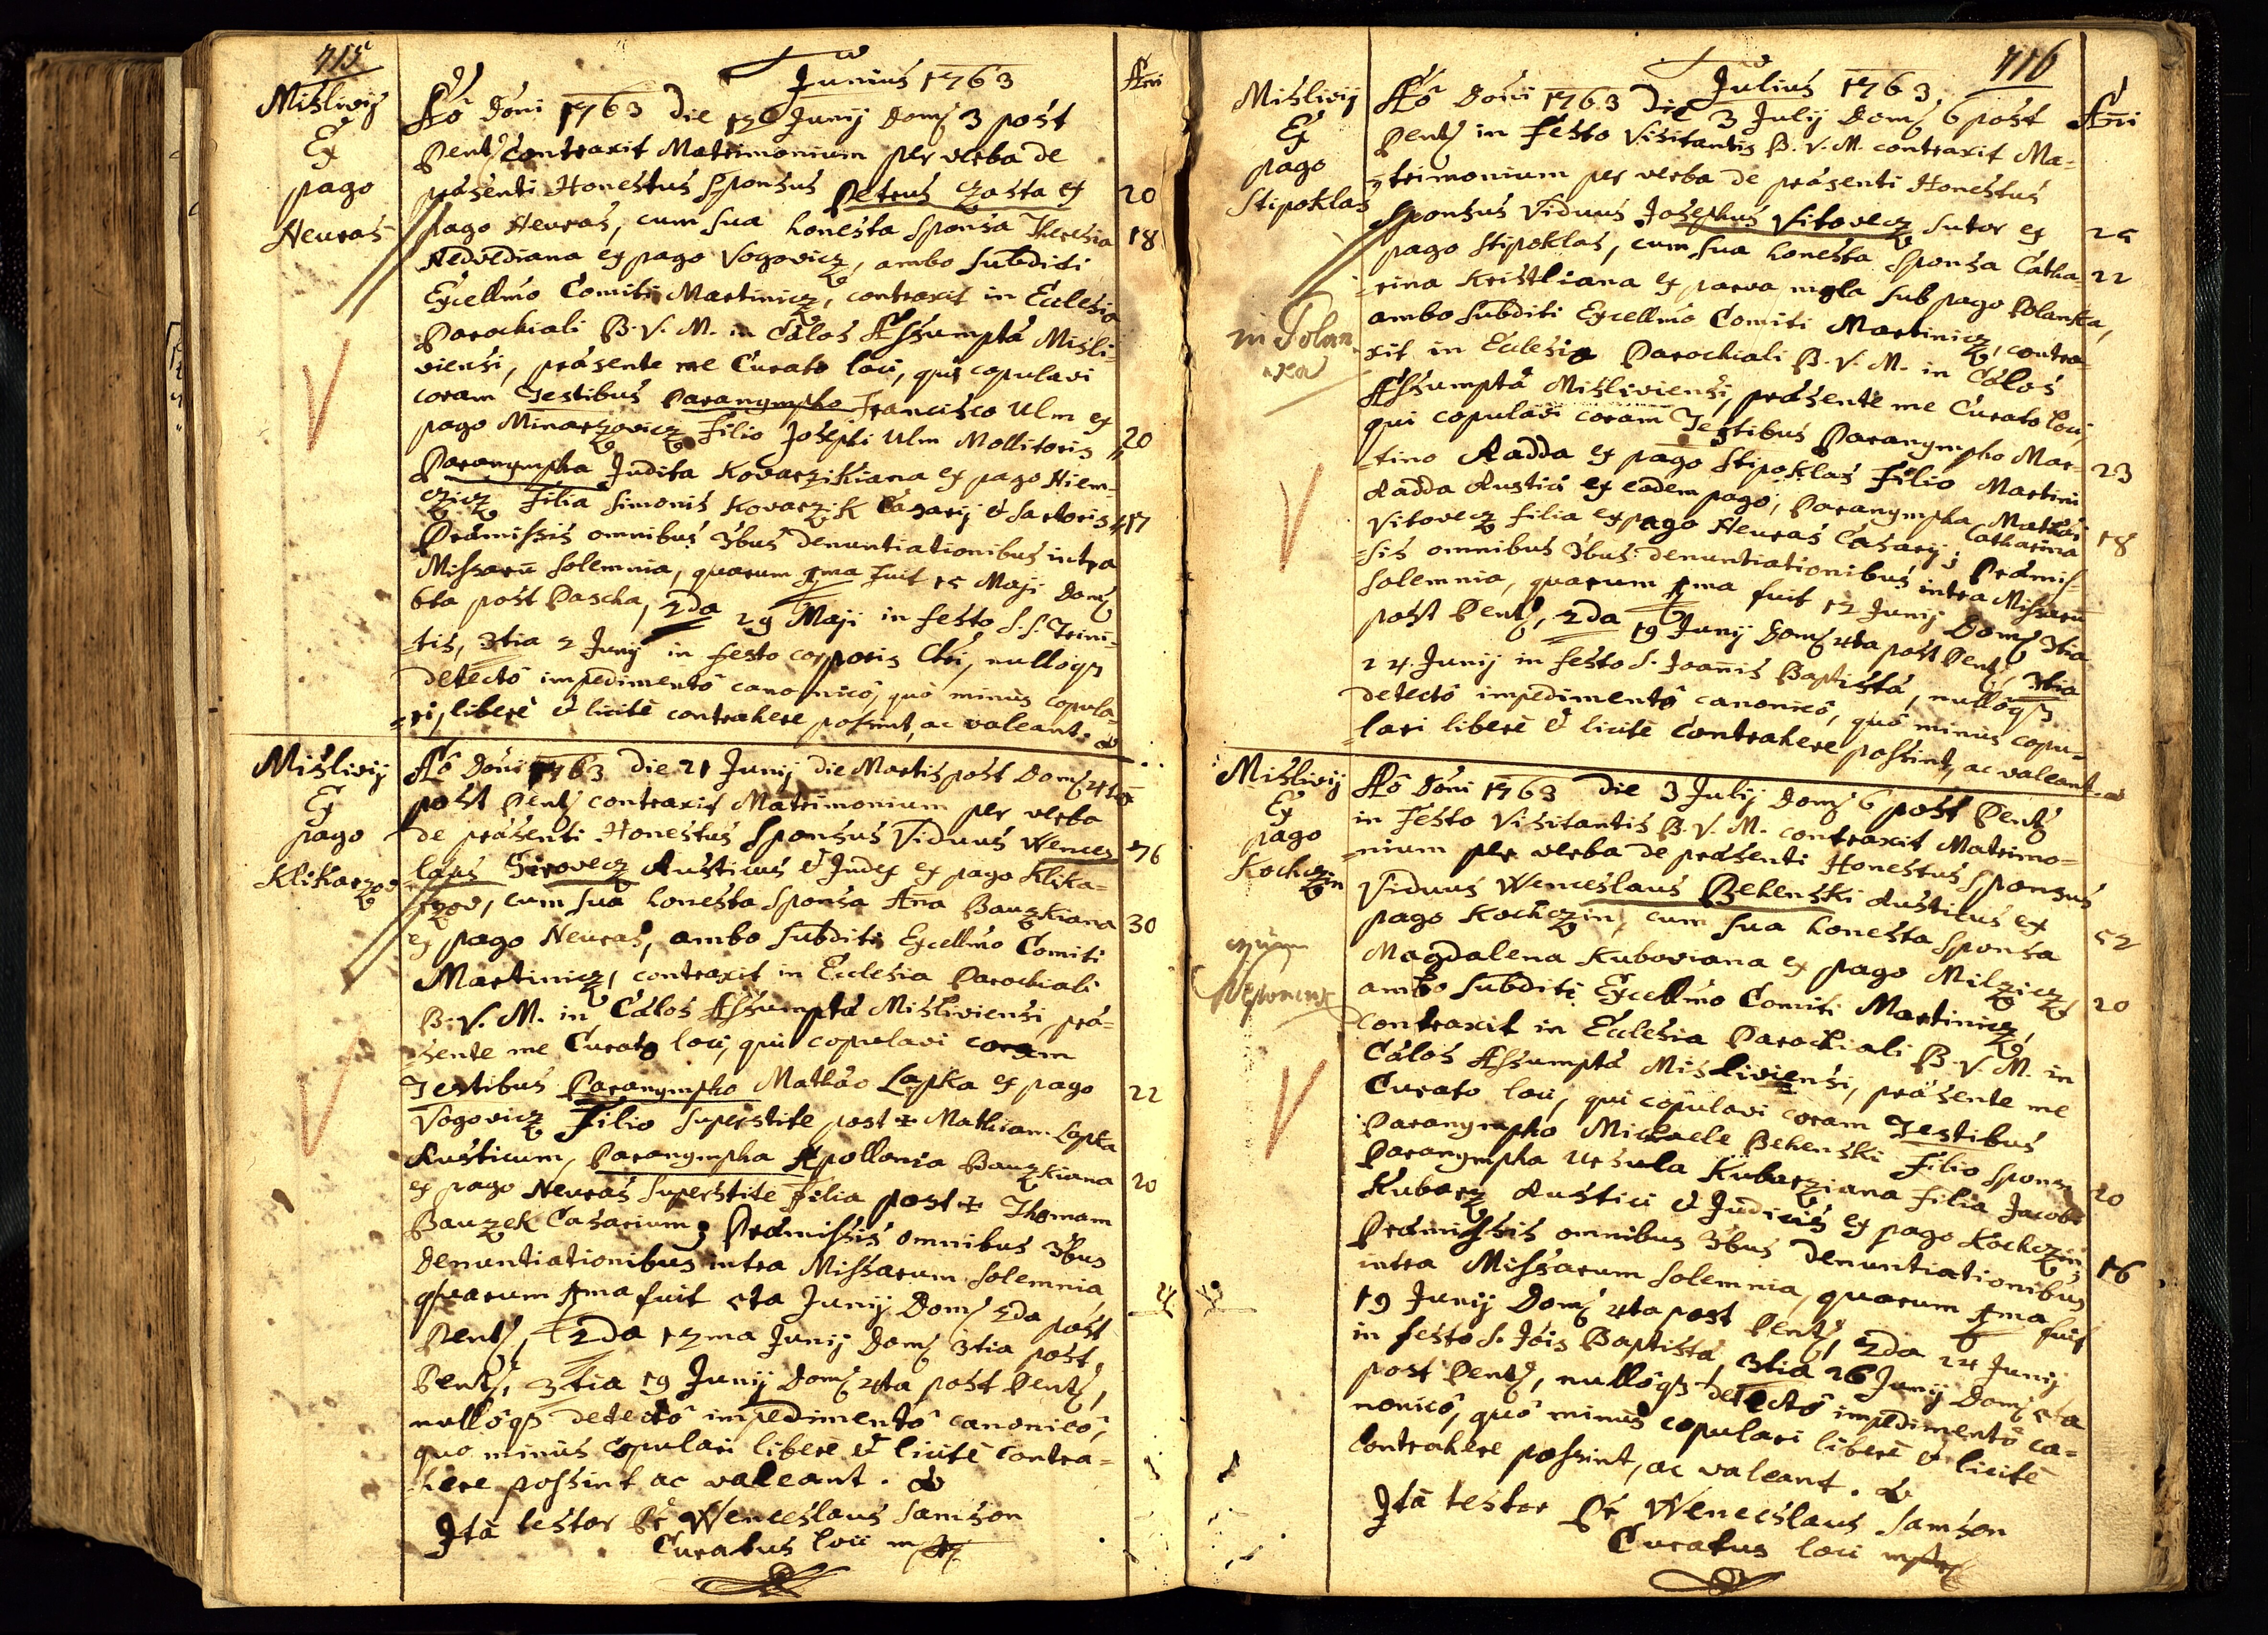 715
Junius 1763
Ani
Mislivij
Ex
pago
Neuras
Aô Dôni 1763 die 12 Junij Dom 3 post
Pent contraxit Matrimonium per verba de
præsenti Honestus Sponsus Petrus Czasta ex
20
pago Neuras, cum sua honesta Sponsa Theresia
18
Nedvediana ex pago Vogovicz, ambo subditi
Excellmo Comiti Martinicz, contraxit in Ecclesia
Parochiali B. V. M. in Cælos Assumptæ Misli-
viensi, præsente me Curato loci, qui copulavi
coram Testibus Paranympho Francisco Ulm ex
pago Minarzovicz Filio Josephi Ulm Mollitoris
20
Paranympha Judita Kovarzikiana ex pago Niem-
czicz Filia Simonis Kovarzik Casarij & Sartoris
17
Præmissis omnibus 3bus denuntiationibus intra
Missarū solemnia, quarum 1ma fuit 15 Maji Dom
6ta post Pascha, 2da 29 Maji in festo S.S. Trini-
-tis, 3tia 2 Junij in festo corporis Chri, nullôq3
detectô impedimentô canonicô, quô minus copula-
-ri, liberè & licitè contrahere possint, ac valeant.
Mislivij
Ex
pago
Klikarzov
Aô Dôni 1763 die 21 Junij die Martis post Dom 4ta
post Pent contraxit Matrimonium per verba
de præsenti Honestus Sponsus Viduus Wences
76
laus Sirovecz Rusticus & Judex ex pago Klika-
rzov, cum sua honesta Sponsa Ana Bauzkiana
30
ex pago Neuras, ambo subditi Excellmo Comiti
Martinicz, contraxit in Ecclesia Parochiali
B. V. M. in Cælos Assumptæ Misliviensi, præ-
-sente me Curato loci, qui copulavi coram
Testibus Paranympho Mathæo Lapka ex pago
22
Vogovicz Filio superstite post + Mathiam Lapka
Rusticum, Paranympha Apollonia Bauzkiana
20
ex pago Neuras superstite Filia post + Thomam
Bauzek Casarium; Præmissis omnibus 3bus
Denuntiationibus intra Missarum solemnia
quarum 1ma fuit 5ta Junij Dom 2da post
Pent, 2da 12ma Junij Dom 3tia post
Pent, 3tia 19 Junij Dom 4ta post Pent,
nullôq3 detectô impedimentô canonicô,
quo minus copulari liberè & licitè contra-
-here possint ac valeant.
Ità testor Pr Wenceslaus Samson
Curatus loci mpp
716
Julius 1763
Ani
Mislivij
Ex
pago
Stipoklas
Aô Dôni 1763 Die 3 Julij Dom 6 post
Pent in Festo Visitantis B. V. M. contraxit Ma-
-trimonium per verba de præsenti Honestus
Sponsus Viduus Josephus Vitovecz Sutor ex
25
pago Stipoklas, cum sua honesta Sponsa Catha-
22
-rina Kristliana ex parva mola sub pago Polanka,
ambo subditi Excellmo Comiti Martinicz, contra-
xit in Ecclesia Parochiali B. V. M. in Cælos
Assumptæ Misliviensi, præsente me Curato loci,
qui copulavi coram Testibus Paranympho Mar-
-tino Radda ex pago Stipoklas Filio Martini
23
Radda Rustici ex eodem pago, Paranympha Catharina
18
Vitovecz filia Mathæi ex pago Neuras Casarij; Præmis-
-sis omnibus 3bus denuntiationibus intra Missarū
solemnia, quarum 1ma fuit 12 Junij Dom 3tia
post Pent, 2da 19 Junij Dom 4ta post Pent, 3tia
24. Junij in festo S. Joannis Baptistæ, nullôq3
detectô impedimentô canonicô, quô minus copu-
lari liberè & licitè contrahere possint, ac valeant.
Mislivij
Ex
pago
Kochczin
Aô Dôni 1763 die 3 Julij Dom 6 post Pent
in Festo Visitantis B. V. M. contraxit Matrimo-
-nium per verba de præsenti Honestus Sponsus
Viduus Wenceslaus Behenski Rusticus ex
52
pago Kochczin, cum sua honesta Sponsa
Magdalena Kuboviana ex pago Milzicz
20
ambo subditi Excellmo Comiti Martinicz,
contraxit in Ecclesia Parochiali B. V. M. in
Cælos Assumptæ Misliviensi, præsente me
Curato loci, qui copulavi coram Testibus
Paranympho Michaele Behenski Filio Sponsi
20
Paranympha Ursula Kubarziana filia Jacobi
Kubarz Rustici & Judicis ex pago Kochczin;
16
Præmissis omnibus 3bus denuntiationibus
intra Missarum solemnia, quarum 1ma fuit
19 Junij Dom 4ta post Pent, 2da 24 Junij
in festo S. Jôis Baptistæ, 3tia 26 Junij Dom 5ta
post Pent, nullôq3 detectô impedimentô ca-
nonicô, quô minus copulari liberè & licitè
contrahere possint, ac valeant.
Ità testor Pr Wenceslaus Samson
Curatus loci mpp